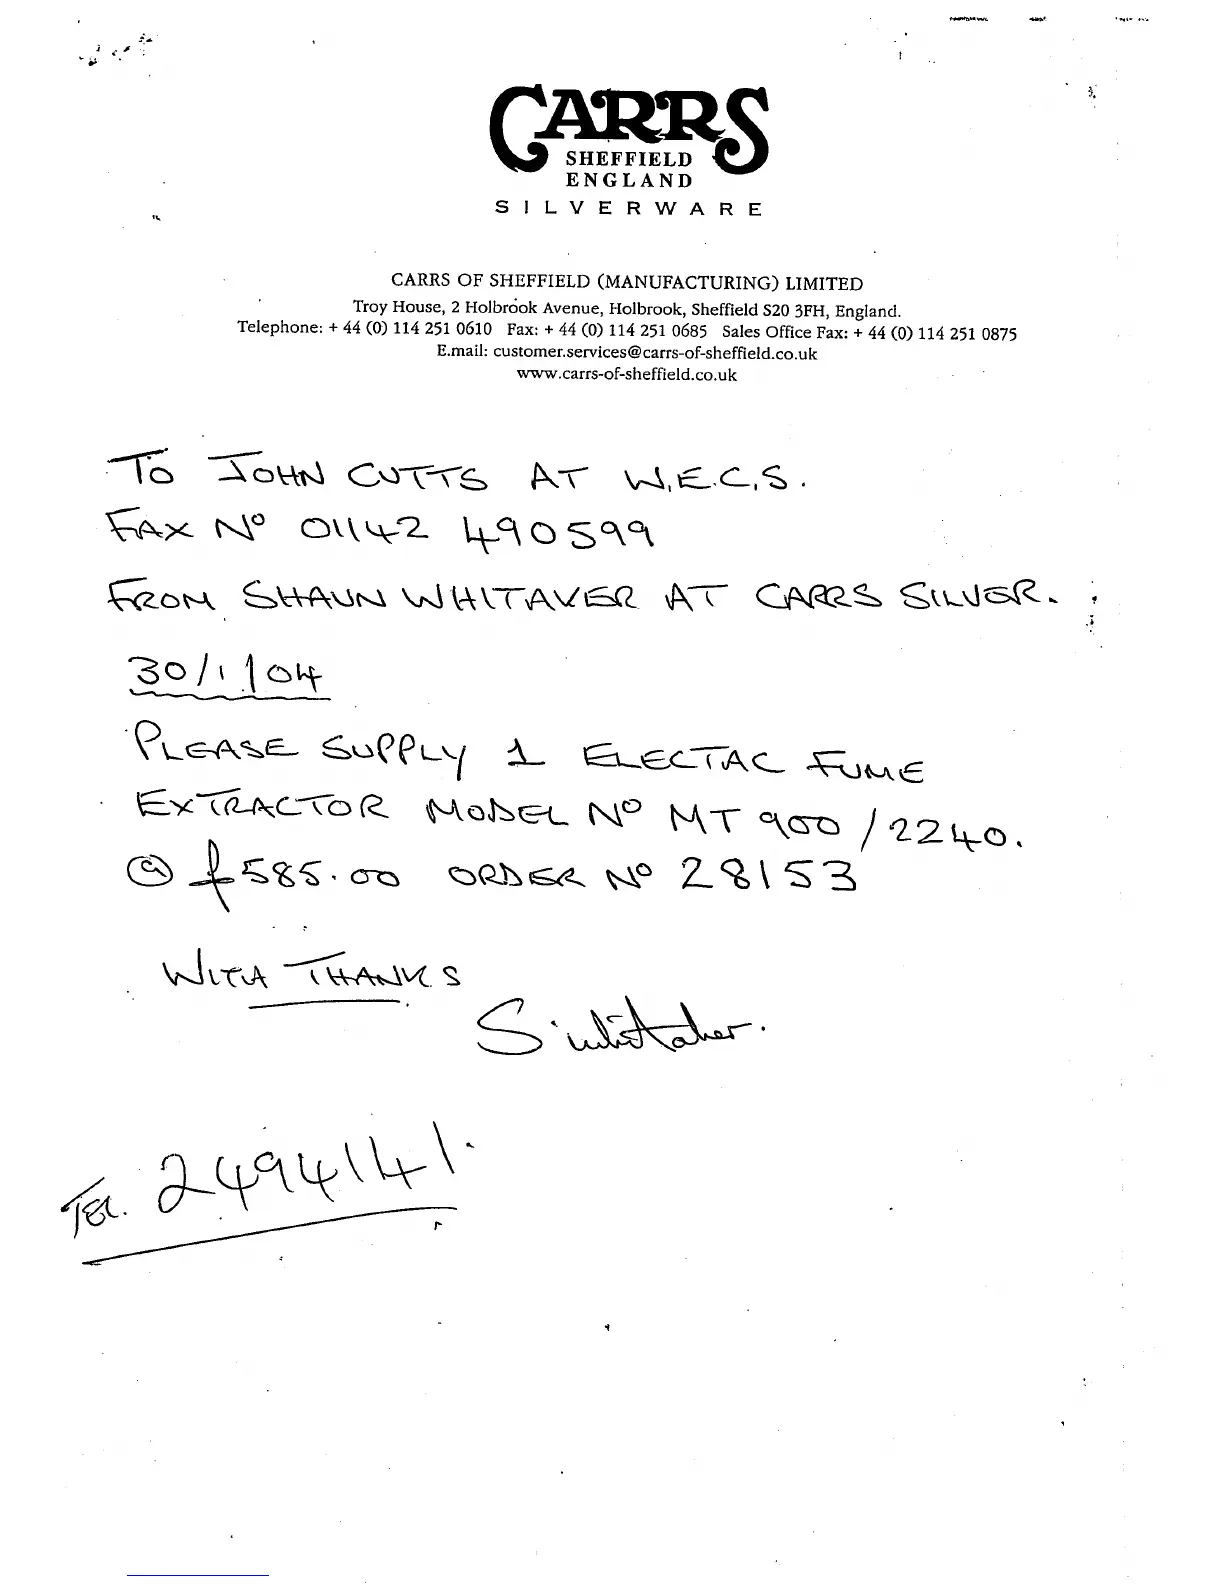 CARRS
SHEFFIELD
ENGLAND
SILVERWARE
CARRS OF SHEFFIELD (MANUFACTURING) LIMITED
Troy House, 2 Holbrook Avenue, Holbrook, Sheffield S20 3FH, England.
Telephone: + 44 (0) 114 251 0610 Fax: + 44 (0) 114 251 0685 Sales Office Fax: + 44 (0) 114 251 0875
E.mail: customer.services@carrs-of-sheffield.co.uk
www.carrs-of-sheffield.co.uk
TO JOHN CUTTS AT W.E.C.S.
FAX Nº 01142 490599
FROM SHAUN WHITAKER AT CARRS SILVER.
30/1/04
PLEASE SUPPLY 1 ELECTAC FUME
EXTRACTOR MODEL Nº MT 900 / 2240.
@ £585.00 ORDER Nº 28153
WITH THANKS
S. Whittaker.
TEL. 2494141.